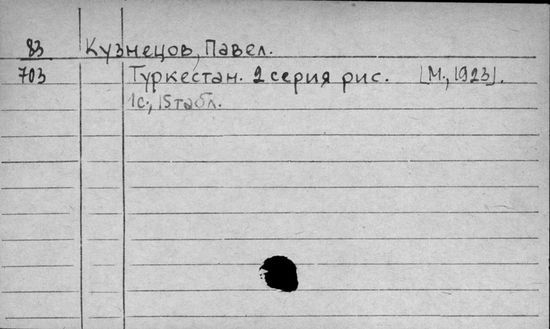 83 Кузнецов, Павел.
703 Туркестан. 2 серия рис. [М., 1923].
1с., 15 табл.